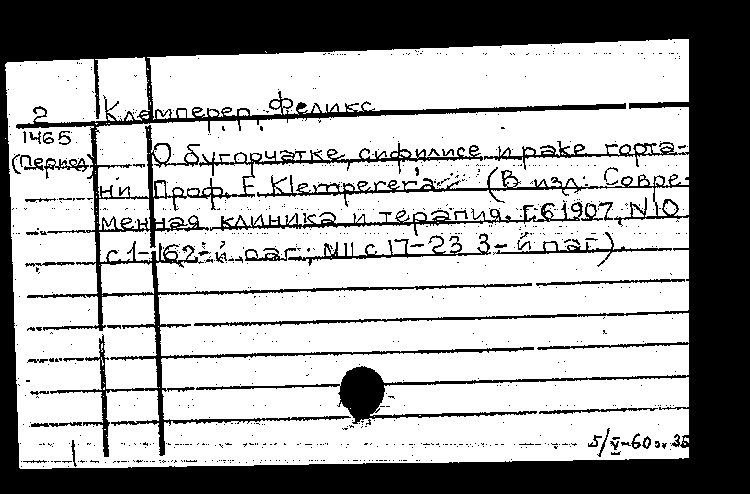 2 Клемперер, Феликс
1465
(Период) О бугорчатке, сифилисе и раке горта-
ни Проф. F. Klemperer'a (В изд: Совре-
менная клиника и терапия. Г.6 1907, N10
с 1-16 2-й паг.; N11 с 17-23 3-й паг).
5/V-60г. 35